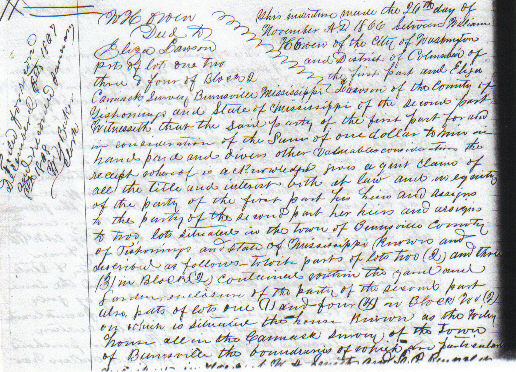 W H Owen
Deed to
Eliza Lawson
prt of lot one two
three & four of Block 2
Camask Survey Burnsville Mississippi
Filed for record
This indenture made the 24th day of
November A.D. 1866 between William
H Owen of the City of Washington
and District of Columbia of
the first part and Eliza
Lawson of the County of
Tishomingo and State of Mississippi of the second part
Witnesseth that the said party of the first part for and
in consideration of the Sum of one dollar to him in
hand paid and other valuable consideration the
receipt whereof is acknowledged give a quit claim of
all the title and interest both at law and in equity
of the party of the first part his heirs and assigns
to the party of the second part her heirs and assigns
to two lots situated in the town of Burnsville County
of Tishomingo and State of Mississippi Known and
described as follows towit parts of lots two (2) and three
(3) in Block (2) contained within the yard and
Garden enclosure of the party of the second part
also parts of lots one (1) and four (4) in Block No (2)
on which is situated the house Known as the
House all in the Camask Survey of the Town
of Burnsville the boundaries of which are particular